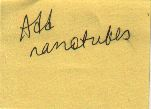 Add
nanotubes